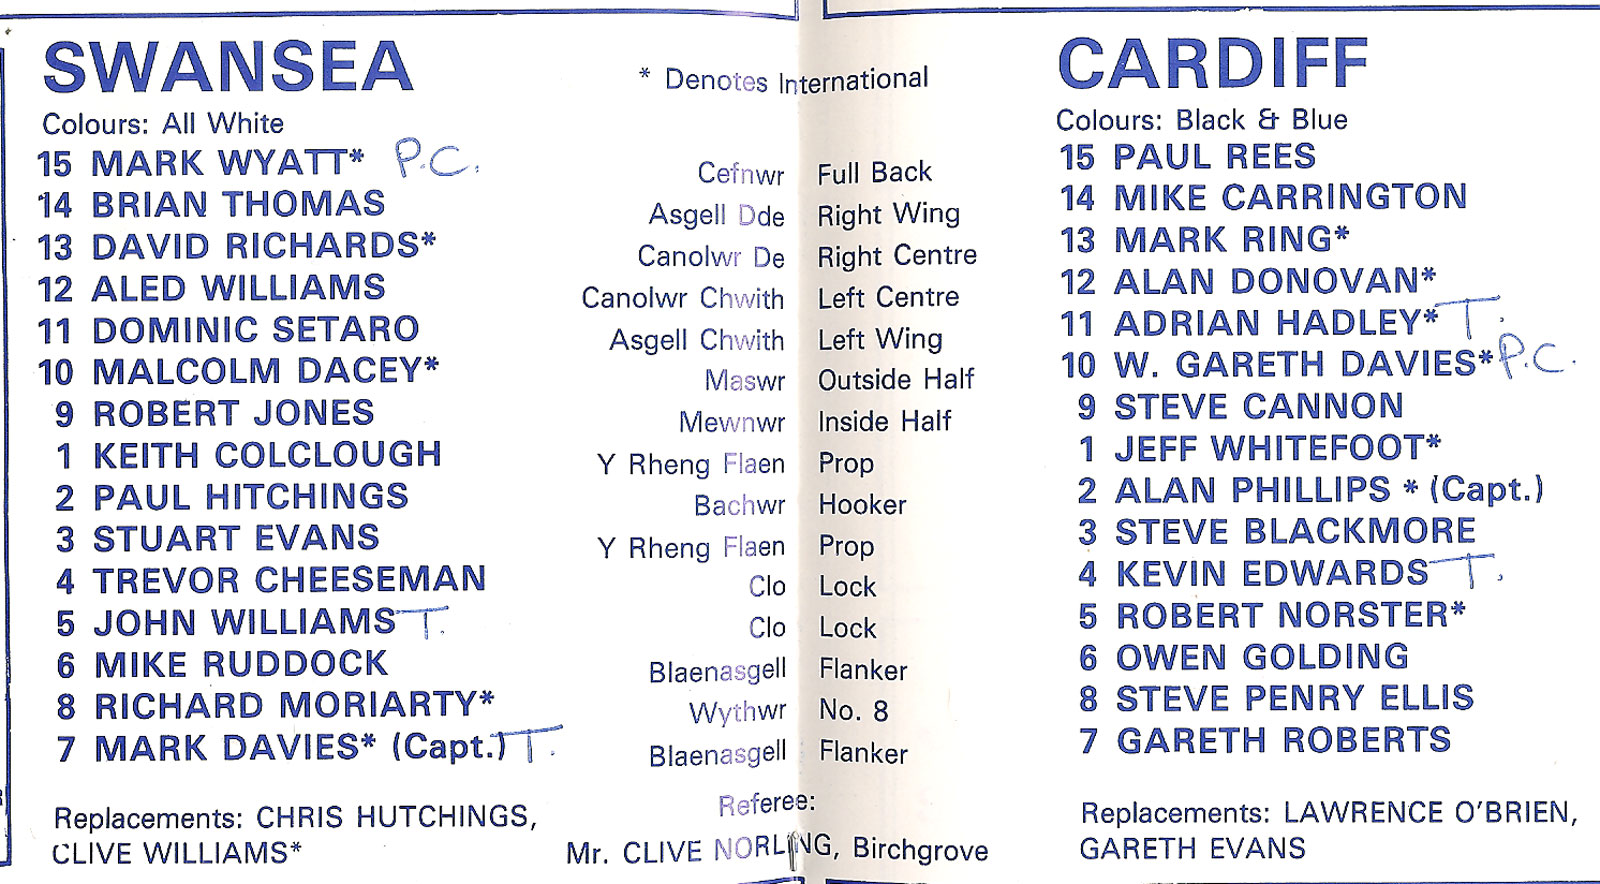 SWANSEA
Colours: All White
15 MARK WYATT* P.C.
14 BRIAN THOMAS
13 DAVID RICHARDS*
12 ALED WILLIAMS
11 DOMINIC SETARO
10 MALCOLM DACEY*
9 ROBERT JONES
1 KEITH COLCLOUGH
2 PAUL HITCHINGS
3 STUART EVANS
4 TREVOR CHEESEMAN
5 JOHN WILLIAMS T.
6 MIKE RUDDOCK
8 RICHARD MORIARTY*
7 MARK DAVIES* (Capt.) T.
Replacements: CHRIS HUTCHINGS,
CLIVE WILLIAMS*
* Denotes International
Cefnwr Full Back
Asgell Dde Right Wing
Canolwr De Right Centre
Canolwr Chwith Left Centre
Asgell Chwith Left Wing
Maswr Outside Half
Mewnwr Inside Half
Y Rheng Flaen Prop
Bachwr Hooker
Y Rheng Flaen Prop
Clo Lock
Clo Lock
Blaenasgell Flanker
Wythwr No. 8
Blaenasgell Flanker
Referee:
Mr. CLIVE NORLING, Birchgrove
CARDIFF
Colours: Black & Blue
15 PAUL REES
14 MIKE CARRINGTON
13 MARK RING*
12 ALAN DONOVAN*
11 ADRIAN HADLEY* T.
10 W. GARETH DAVIES* P.C.
9 STEVE CANNON
1 JEFF WHITEFOOT*
2 ALAN PHILLIPS * (Capt.)
3 STEVE BLACKMORE
4 KEVIN EDWARDS T.
5 ROBERT NORSTER*
6 OWEN GOLDING
8 STEVE PENRY ELLIS
7 GARETH ROBERTS
Replacements: LAWRENCE O'BRIEN,
GARETH EVANS